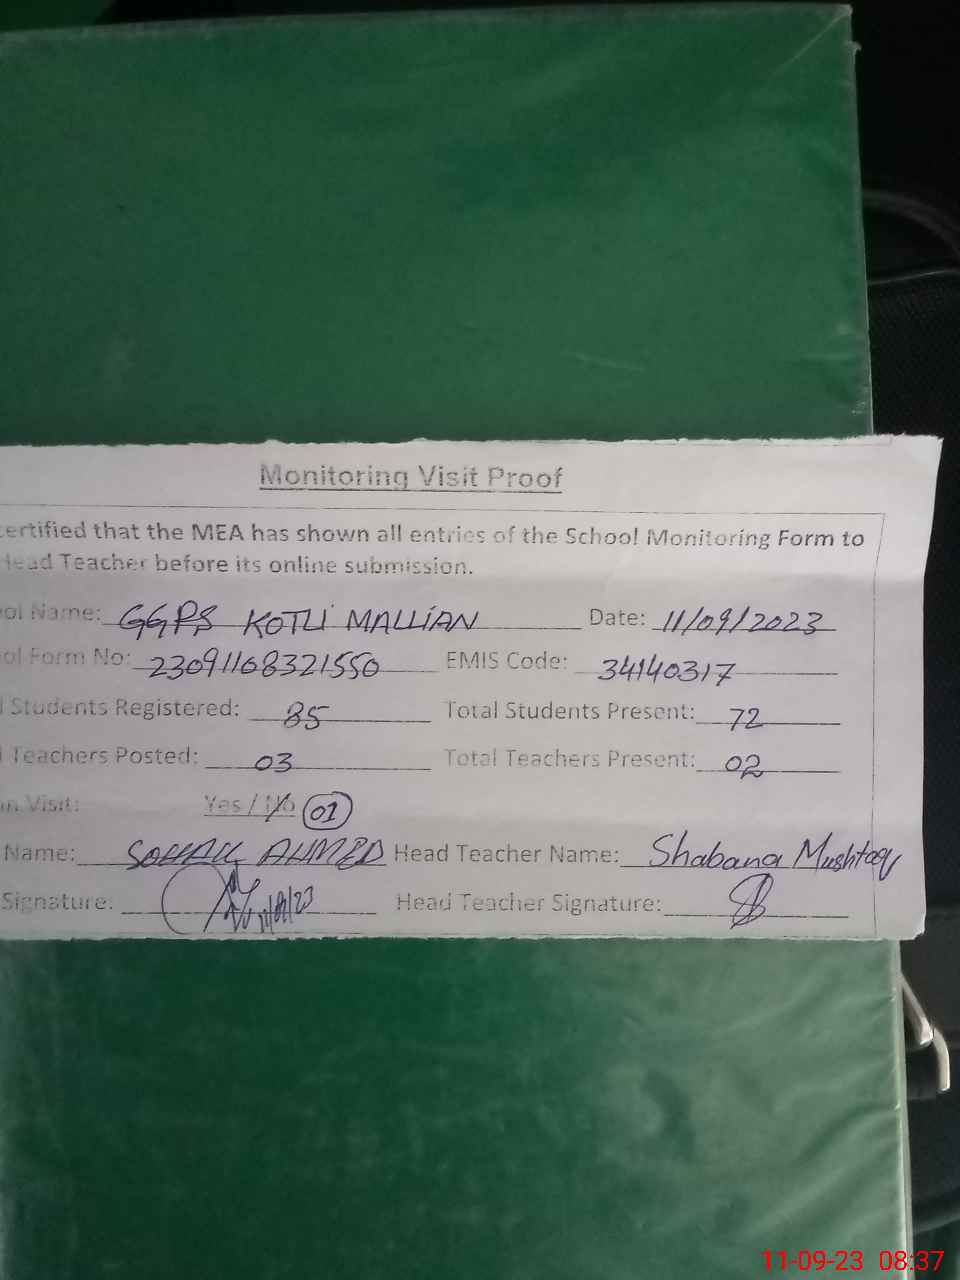 Monitoring Visit Proof
certified that the MEA has shown all entries of the School Monitoring Form to
Head Teacher before its online submission.
ol Name: GGPS KOTLI MALLIAN Date: 11/09/2023
ol Form No: 23091168321550 EMIS Code: 34140317
l Students Registered: 85 Total Students Present: 72
l Teachers Posted: 03 Total Teachers Present: 02
on Visit: Yes / No 01
Name: SOHAIL AHMED Head Teacher Name: Shabana Mushtaq
Signature: 11/09/23 Head Teacher Signature:
11-09-23 08:37